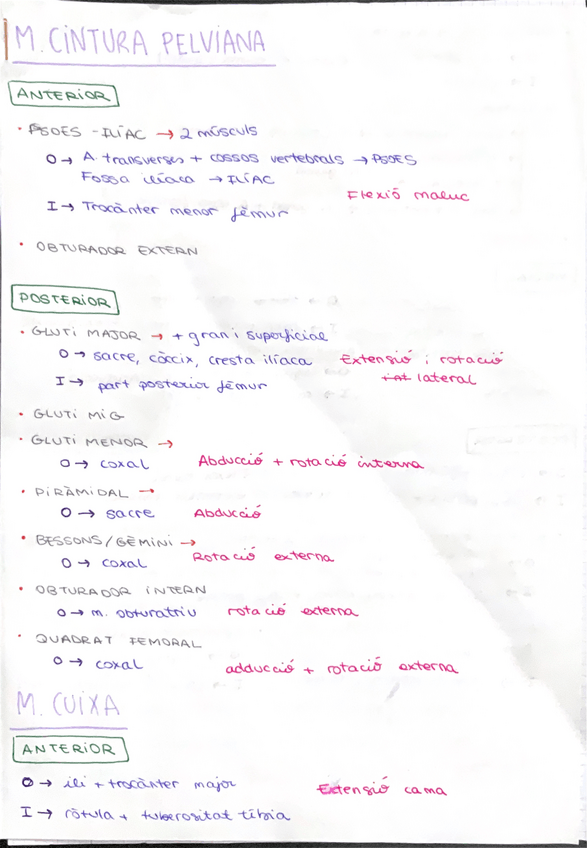 M. CINTURA PELVIANA
ANTERIOR
· PSOES - ILÍAC → 2 músculs
O → A. transverses + cossos vertebrals → PSOES
Fossa ilíaca → ILÍAC
Flexió maluc
I → Trocànter menor fèmur
· OBTURADOR EXTERN
POSTERIOR
· GLUTI MAJOR → + gran i superficial
O → sacre, còccix, cresta ilíaca Extensió i rotació
I → part posterior fèmur int lateral
· GLUTI MIG
· GLUTI MENOR →
O → coxal Abducció + rotació interna
· PIRAMIDAL →
O → sacre Abducció
· BESSONS/GÈMINI →
O → coxal Rotació externa
· OBTURADOR INTERN
O → m. obturatriu rotació externa
· QUADRAT FEMORAL
O → coxal adducció + rotació externa
M. CUIXA
ANTERIOR
O → ili + trocànter major Extensió cama
I → ròtula + tuberositat tíbia